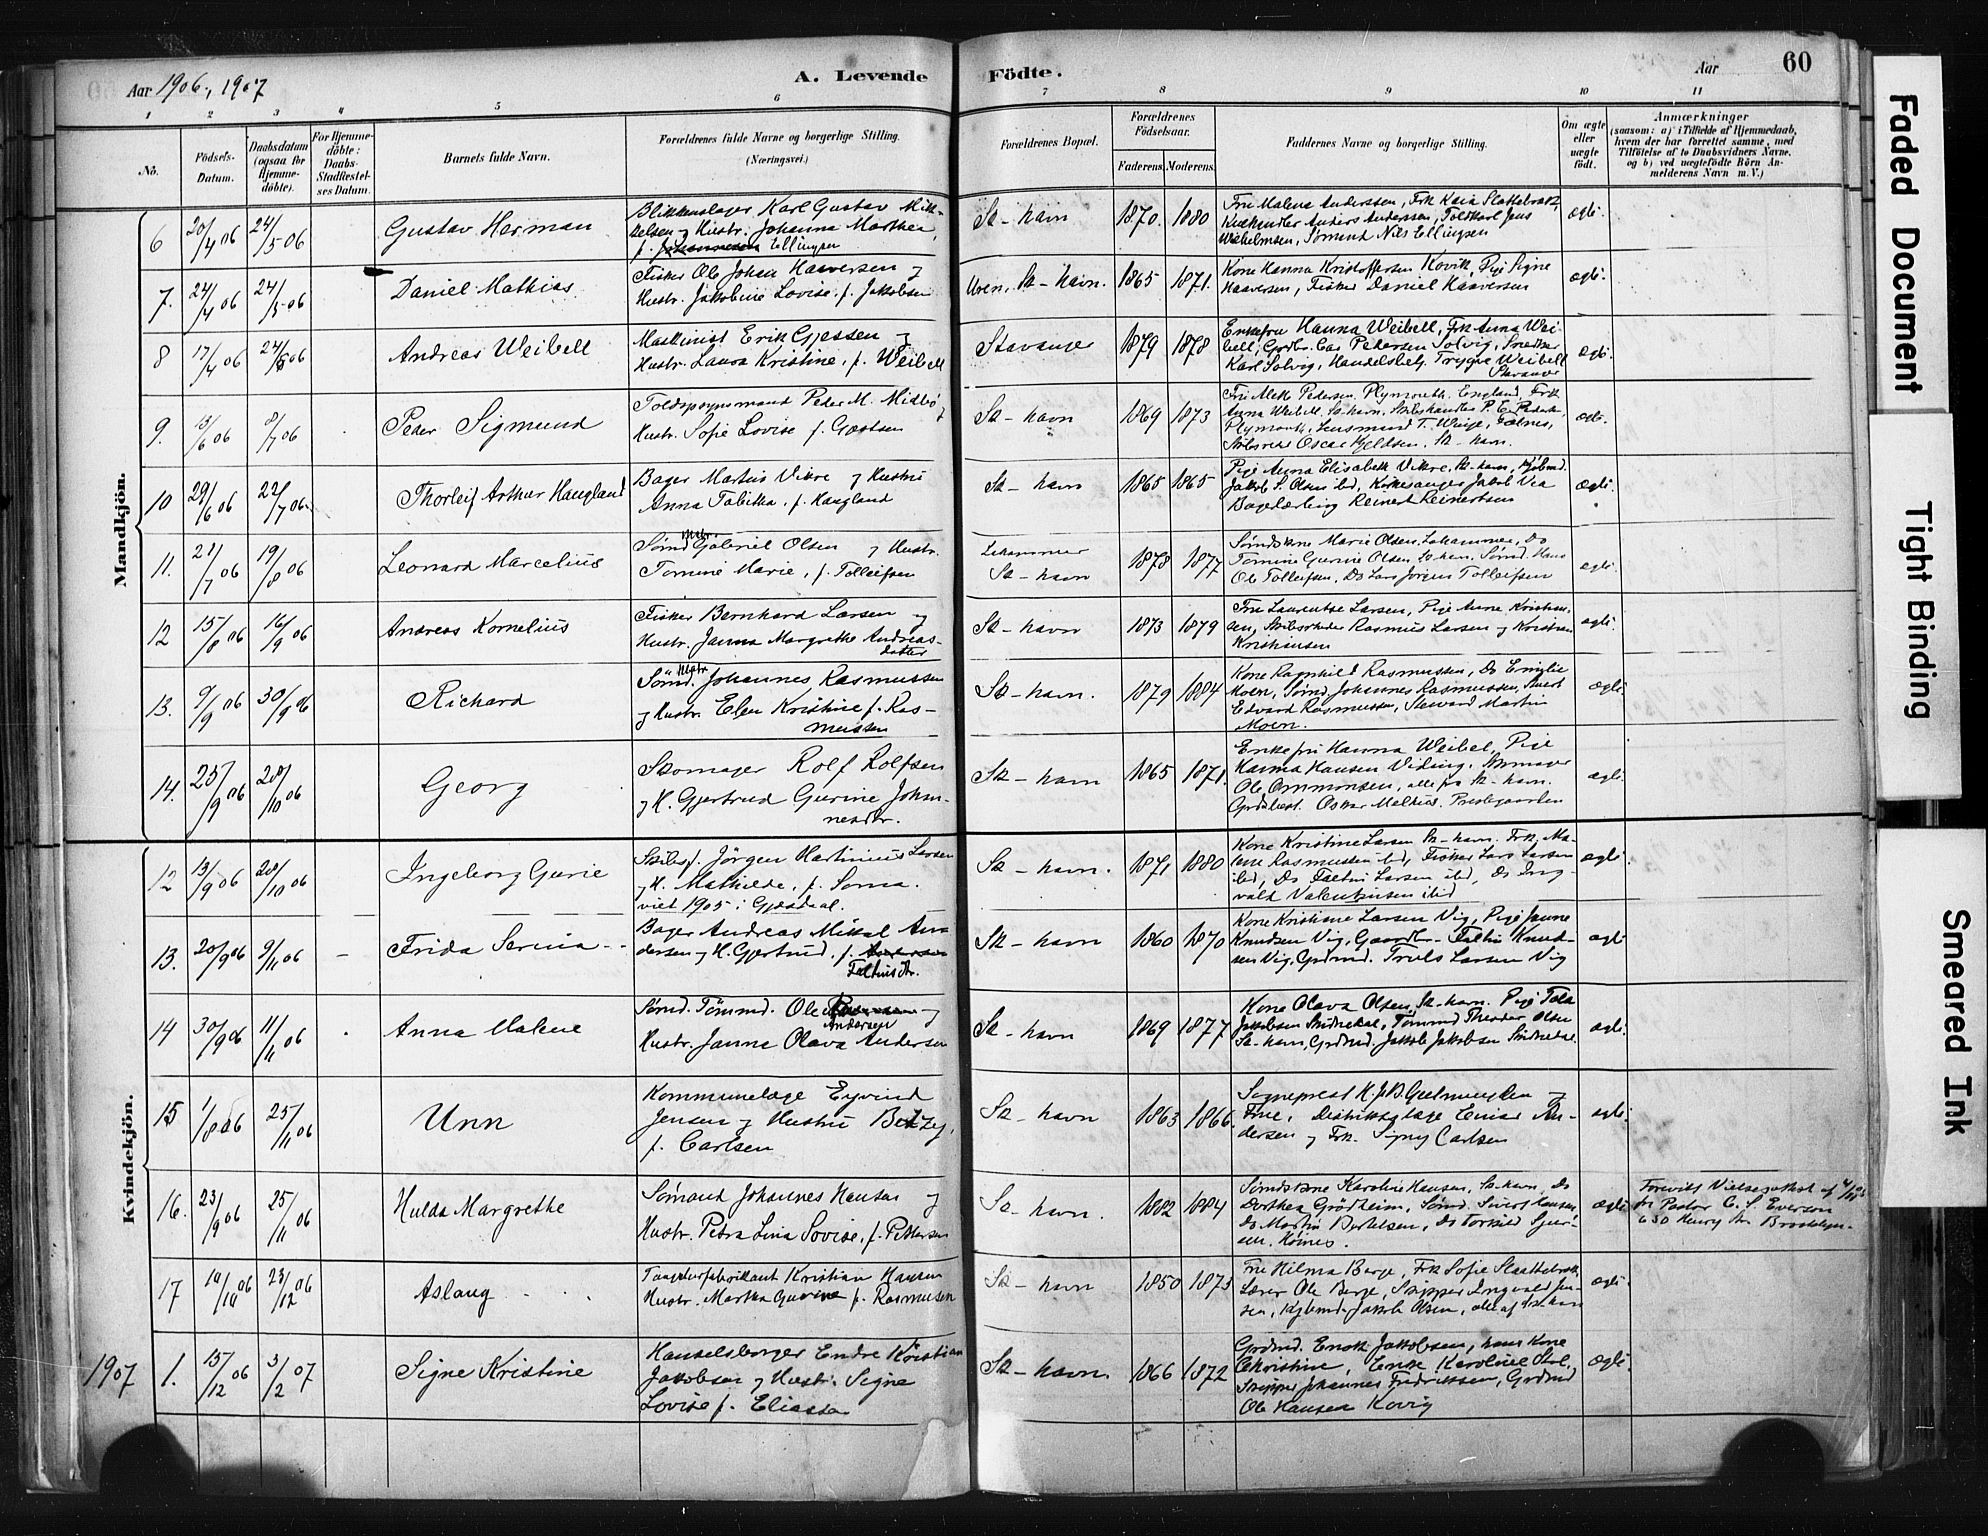 Aar 1906, 1907
A. Levende Födte.
Aar 60
1 2 3 4 5 6 7 8 9 10 11
No.
Födsels-Datum.
Daabsdatum (ogsaa for Hjemme-döbte).
For Hjemme-döbte: Daabs-Stadfæstel-ses Datum.
Barnets fulde Navn.
Forældrenes fulde Navne og borgerlige Stilling.
(Næringsvei.)
Forældrenes Bopæl.
Forældrenes Födselsaar.
Faderens. Moderens.
Faddernes Navne og borgerlige Stilling.
Om ægte eller uægte født.
Anmærkninger
(saasom: a) i Tilfælde af Hjemmedaab,
hvem der har forrettet samme, med
Tilföielse af to Daabsvidners Navne,
og b) ved uægtefödte Börn An-
melderens Navn m. V.)
Mandkjön.
6 20/4 06 24/5 06 Gustav Herman
Blikkenslager Karl Gustav Mik-
kelsen og Hustr. Johanna Marthea,
f. Ellingsen
Sk-havn 1870. 1880
Fru Malena Anderssen, Frk Kaia Slettebrekk,
Anders Anderssen, Toldkarl Jens
Wilhelmsen, Sømand Nils Ellingsen
ægte.
7. 24/4 06 24/5 06 Daniel Mathias
Fisker Ole Johan Haaversen og
Hustr. Jakobine Lovise, f. Jakobsen
Uren, Sk-havn. 1865 1871.
Kone Hanna Kristoffersen Kovik, Pige Signe
Haaversen, Fisker Daniel Haaversen
ægte.
8 17/4 06 24/5 06 Andreas Weibell
Maskinist Erik Gjessen og
Hustr. Laura Kristine, f. Weibell
Stavanger 1879 1878
Enkefru Hanna Weibell, Frk Anna Wei-
bell, Grdbr. Petersen Solvig, Snedker
Karl Solvig, Handelsbetj. Trygve Weibell
Stavanger
ægte.
9. 13/6 06 8/7 06 Peder Sigmund
Toldopsynsmand Peder M. Midbö
Hustr. Sofie Lovise f.
Sk-havn 1869 1873
Pedersen, Plymouth, England, Frk
Anna Weibell, Sk-havn, Skibshandler P. E. Peder-
Plymouth, Lensmand T. Falnes,
Skibsreder Oscar Kjeldsen, Sk-havn.
ægte.
10 29/6 06 22/7 06. Thorleif Arthur Haugland
Bager Martin Vikre og Hustru
Anna Tabitha, f. Haugland
Sk-havn 1865 1865
Pige Anna Elisabeth Vikre, Sk-havn, Kjöbmd.
Jakob S. Olsen ibd, Kirkesanger Jakob Vea
Bagerlærling Reinert Reinertsen
Ægte.
11. 21/7 06 19/8 06 Leonard Marcelius
Sømd Matr. Gabriel Olsen og Hustr.
Tomine Marie, f. Tolleifsen
Sk-havn 1878 1877
Sømdskone Marie Olsen, Lahammer, Do
Tomine Gurine Olsen, Sk-havn, Sømd. Hans
Ole Tolleifsen, Do Lars Jörgen Tolleifsen
ægte.
12 15/8 06 16/9 06 Andreas Kornelius
Fisker Bernhard Larsen og
Hustr. Janna Margrethe Andreas-
datter
Sk-havn 1873 1879
Fru Laurentse Larsen, Pige Anne Kristian-
sen, Rasmus Larsen og Kristian
Kristiansen
ægte.
13. 9/9 06 30/9 06 Richard
Sömd. Matr. Johannes Rasmussen
og Hustr. Elen Kristine f. Ras-
mussen
Sk-havn. 1879 1884
Kone Ragnhild Rasmussen, Do Emilie
Moen, Sømd. Johannes Rasmussen,
Edvard Rasmussen, Steward Martin
Moen.
ægte
14. 25/9 06 28/10 06 Georg
Skomager Rolf Rolfsen
og H. Gjertrud Gurine Johan-
nesdtr.
Sk-havn 1865 1871.
Enkefru Hanna Weibel, Pige
Hanna Hansen Viding, Skomager
Ole Ommonsen, alle fra Sk-havn.
Grdbest. Oskar Præstegaarden
ægte
Kvindekjön.
12 13/9 06 28/10 06 Ingeborg Gurie
Skibsf. Jörgen Martinius Larsen
og H. Mathilde, f. Soma.
viet 1905 i Gjesdaal.
Sk-havn. 1871 1880
Kone Kristine Larsen Sk-havn. Frk. Ma-
lene Rasmussen ibd, Fisker Lars Larsen
ibid, Do Feltin Larsen ibd, Do Ing-
vald Valentinsen ibid
ægte.
13. 20/9 06 9/11 06 - Frida Serina
Bager Andreas Mikal An-
dersen og H. Gjertrud, f.
Feltinsdtr.
Sk-havn 1860 1870
Kone Kristiane Larsen Vig, Pige Janne
Knudsen Vig, Gaardbr. Feltin Knud-
sen Vig, Grdmd. Truls Larsen Vig
ægte
14 30/9 06 11/11 06 Anna Malene
Sömd. Tömmd. Ole
Andersen og
Hustr. Janna Olava Andersen
Sk-havn 1869 1877
Kone Olava Olsen, Sk-havn. Pige Tala
Jakobsen, Tömmd Theodor Olsen
Sk-havn, Grdmd. Jakob Jakobsen
ægte.
15 1/8 06 25/11 06 Unn
Kommunelæge Eyvind
Jensen og Hustru Betzy,
f. Carlsen
Sk-havn 1863 1866.
Sogneprest og
Frue, Distriktslæge Einar An-
dersen og Frk. Signy Carlsen
ægte.
16. 23/9 06 25/11 06 Hulda Margrethe
Sømand Johannes Hansen og
Hustr. Petra Lina Lovise, f. Pettersen
Sk-havn. 1882 1884
Sømdskone Karoline Hansen, Sk-havn, Do
Dorthea Grödheim, Sömd. Sivert Hansen,
Do Martin Bertelsen, Do Torkild Sjur-
sen, Høines.
ægte
Forevist Vielsesattest af
fra Pastor C. S. Everson
630 Henry Str. Brooklyn.
17 19/10 06 23/12 06 Aslaug
Kristian Hansen
Hustr. Martha Gurine f. Rasmussen
Sk-havn 1850 1873
Fru Hilma Berge, Frk Sofie Slettebrekk
Lærer Ole Berge, Skipper Ingvald Jen-
sen, Kjøbmd Jakob Olsen, alle af Sk-havn
ægte
1907 1. 15/12 06 3/2 07 Signe Kristine
Handelsborger Endre Kristian
Jakobsen og Hustr. Signe
Lovise f. Eliassen
Sk-havn 1866 1872
Grdmd. Enok Jakobsen, hans Kone
Christine, Enke Karoline
Skipper Johannes Fredrikssen, Grdmd
Ole Hansen Kovig
ægte.
Faded Document
Tight Binding
Smeared Ink